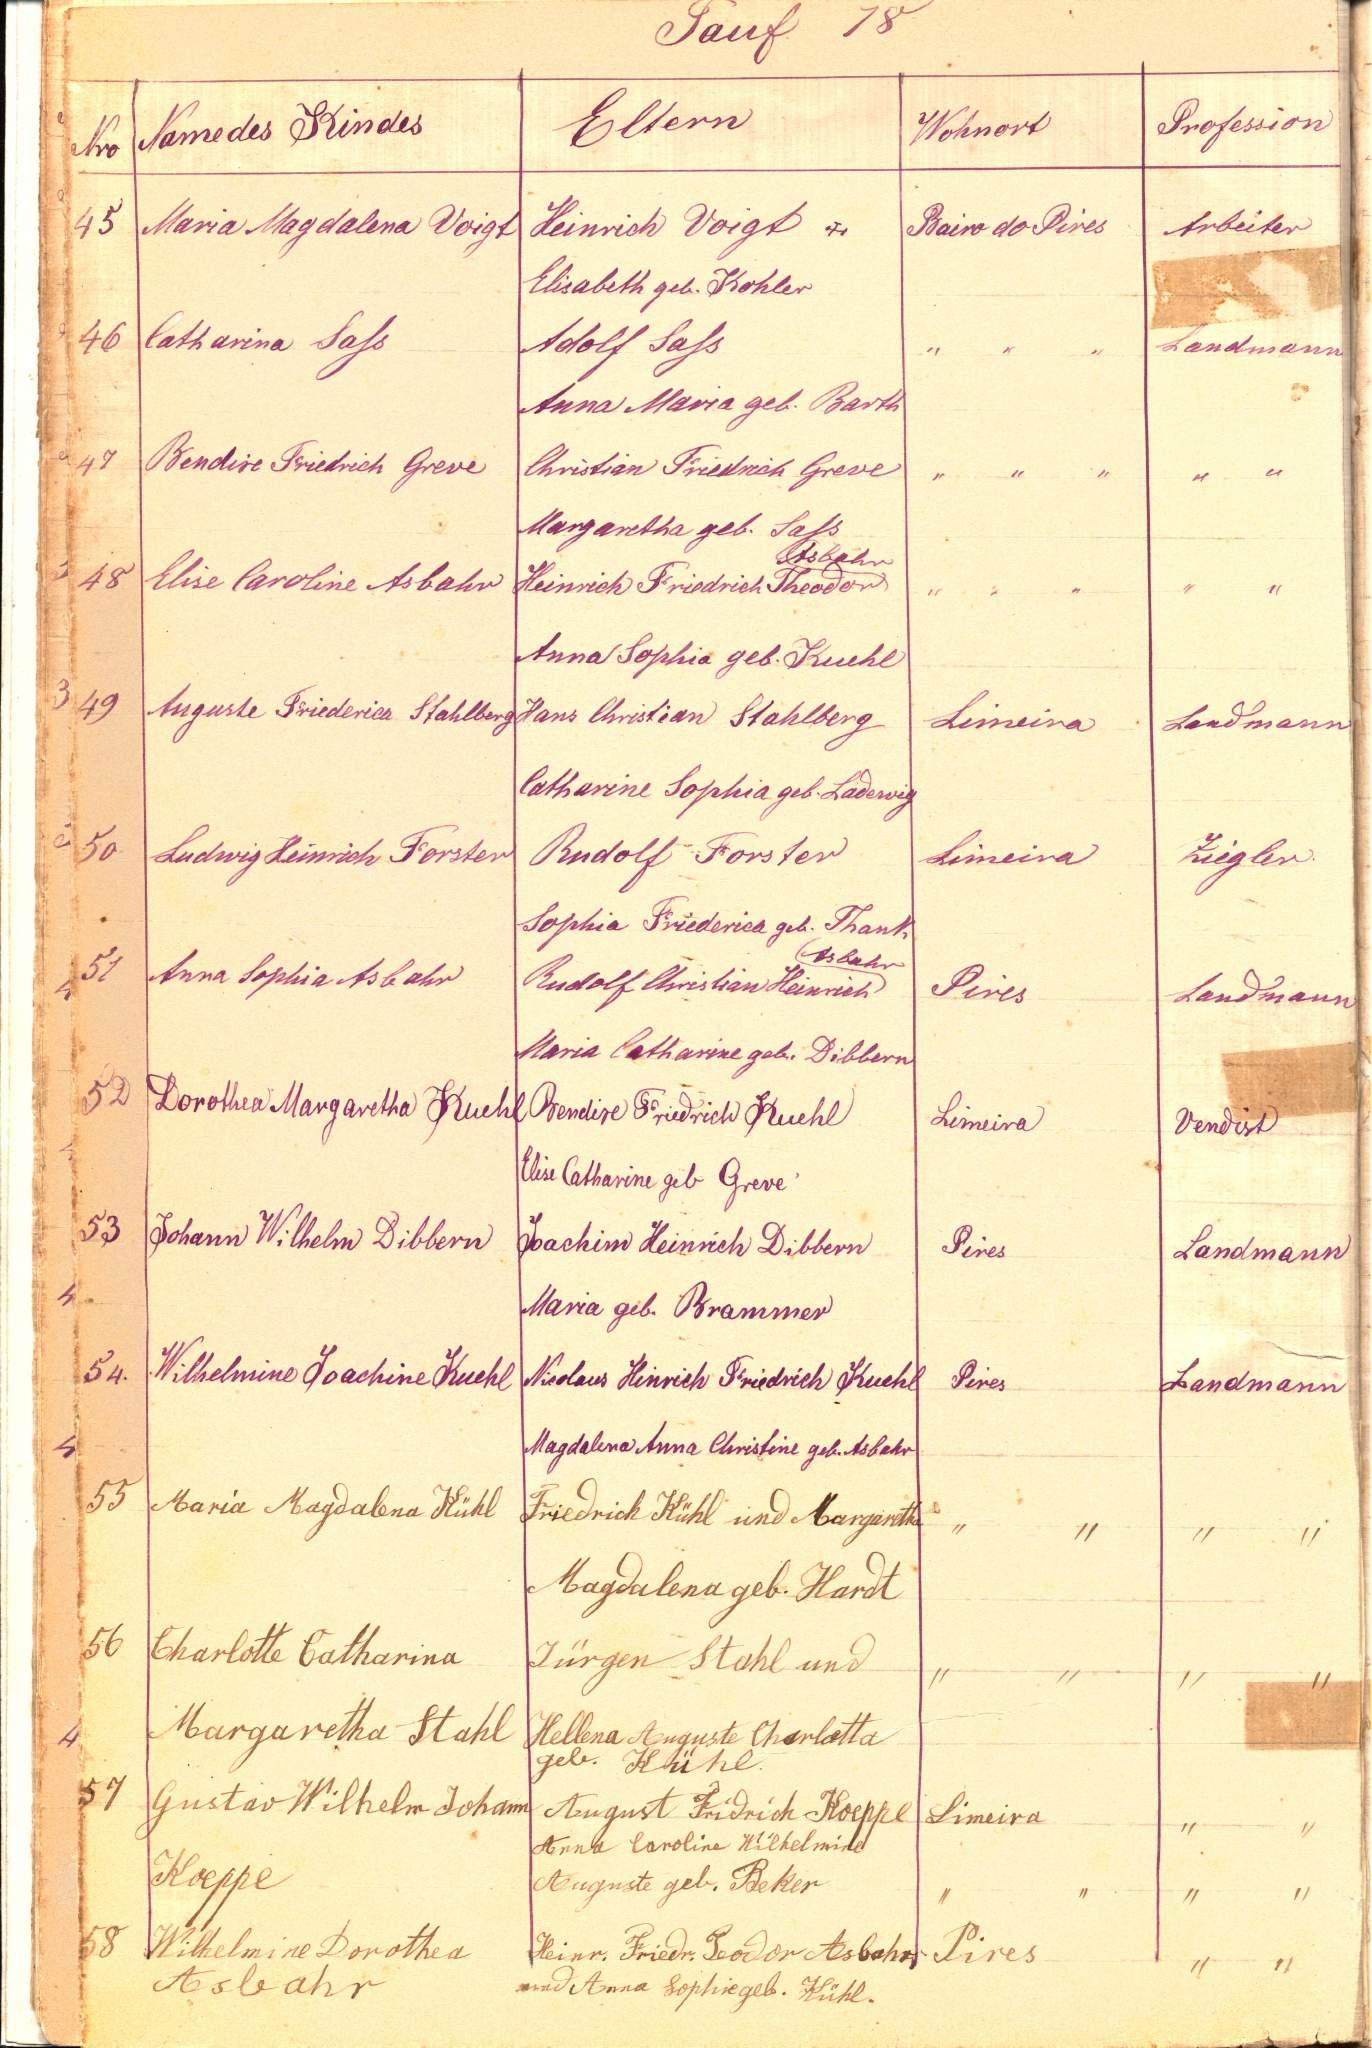 Tauf 18
Nro Name des Kindes Eltern Wohnort Profession
45 Maria Magdalena Voigt Heinrich Voigt Bairo do Pires Arbeiter
Elisabeth geb. Kohler
46 Catharina Sass Adolf Sass " " " Landmann
Anna Maria geb. Barth
47 Bendixe Friedrich Greve Christian Friedrich Greve " " " " "
Margaretha geb. Sass
Asbahr
48 Elise Caroline Asbahr Heinrich Friedrich Theodor " " " " "
Anna Sophia geb. Kuehl
3 49 Auguste Friederica Stahlberg Hans Christian Stahlberg Limeira Landmann
Catharine Sophia geb. Ladewig
50 Ludwig Heinrich Forster Rudolf Forster Limeira Ziegler
Sophia Friederica geb. Thank
Asbahr
51 Anna Sophia Asbahr Rudolf Christian Heinrich Pires Landmann
4
Maria Catharine geb. Dibbern
52 Dorothea Margaretha Kuehl Bendixe Friedrich Kuehl Limeira Vendist
Elise Catharine geb Greve
53 Johann Wilhelm Dibbern Joachim Heinrich Dibbern Pires Landmann
4 Maria geb. Brammer
54. Wilhelmine Joachine Kuehl Nicolaus Hinrich Friedrich Kuehl Pires Landmann
4 Magdalena Anna Christine geb. Asbahr
55 Maria Magdalena Kühl Friedrich Kühl und Margaretha " " " "
Magdalena geb. Hardt
56 Charlotte Catharina Jürgen Stahl und " " " "
4 Margaretha Stahl Hellena Auguste Charlotta
geb. Kühl.
57 Gustav Wilhelm Johann August Fridrich Koeppe Limeira " "
Anna Caroline Wilhelmine
Koeppe Auguste geb. Beker " " " "
58 Wilhelmine Dorothea Heinr. Friedr. Teodor Asbahr Pires " "
Asbahr und Anna Sophie geb. Kühl.